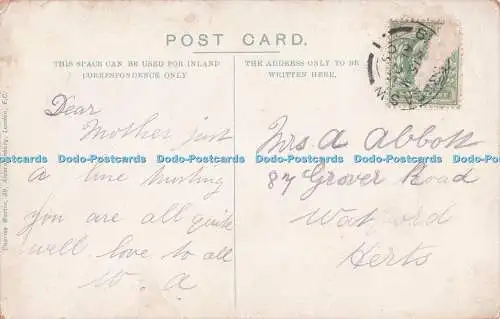 POST CARD.
THIS SPACE CAN BE USED FOR INLAND
CORRESPONDENCE ONLY
THE ADDRESS ONLY TO BE
WRITTEN HERE.
Dear
Mother just
a line trusting
you are all quite
well love to all
W. A
Mrs A Abbott
87 Grover Road
Watford
Herts
Dodo-Postcards Dodo-Postcards Dodo-Postcards Dodo-Postcards Dodo-Postcards Dodo-Postcards
Charles Martin, 39, Aldermanbury, London, E.C.